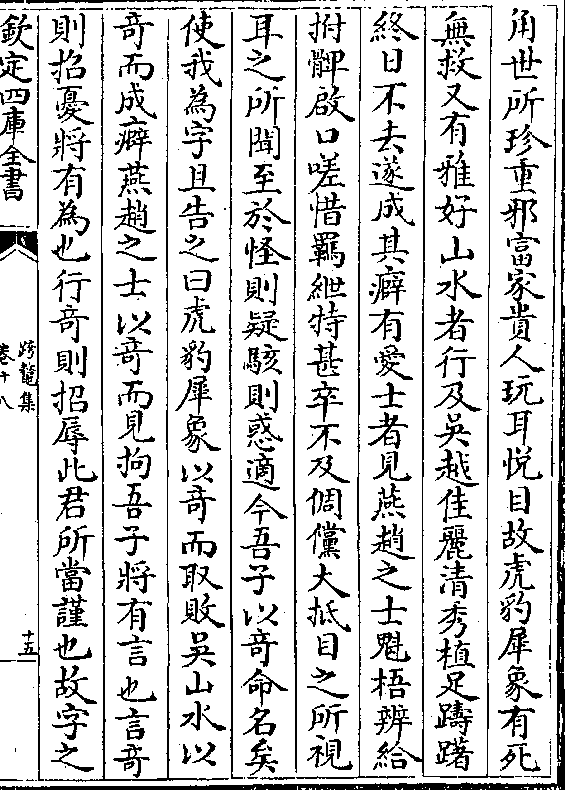 角世所珍重邪富家貴人玩耳悦目故虎豹犀象有死
無救又有雅好山水者行及吳越佳麗清秀植足躊躇
終日不去遂成其癖有愛士者見燕趙之士魁梧辨給
拊髀啟口嗟惜羈紲特甚卒不及倜儻大抵目之所視
耳之所聞至於怪則疑駭則惑適今吾子以竒命名矣
使我為字且告之曰虎豹犀象以竒而取敗吳山水以
竒而成癖燕趙之士以竒而見拘吾子將有言也言竒
則招憂將有為也行竒則招辱此君所當謹也故字之
欽定四庫全書
跨鼇集
卷十八
十五